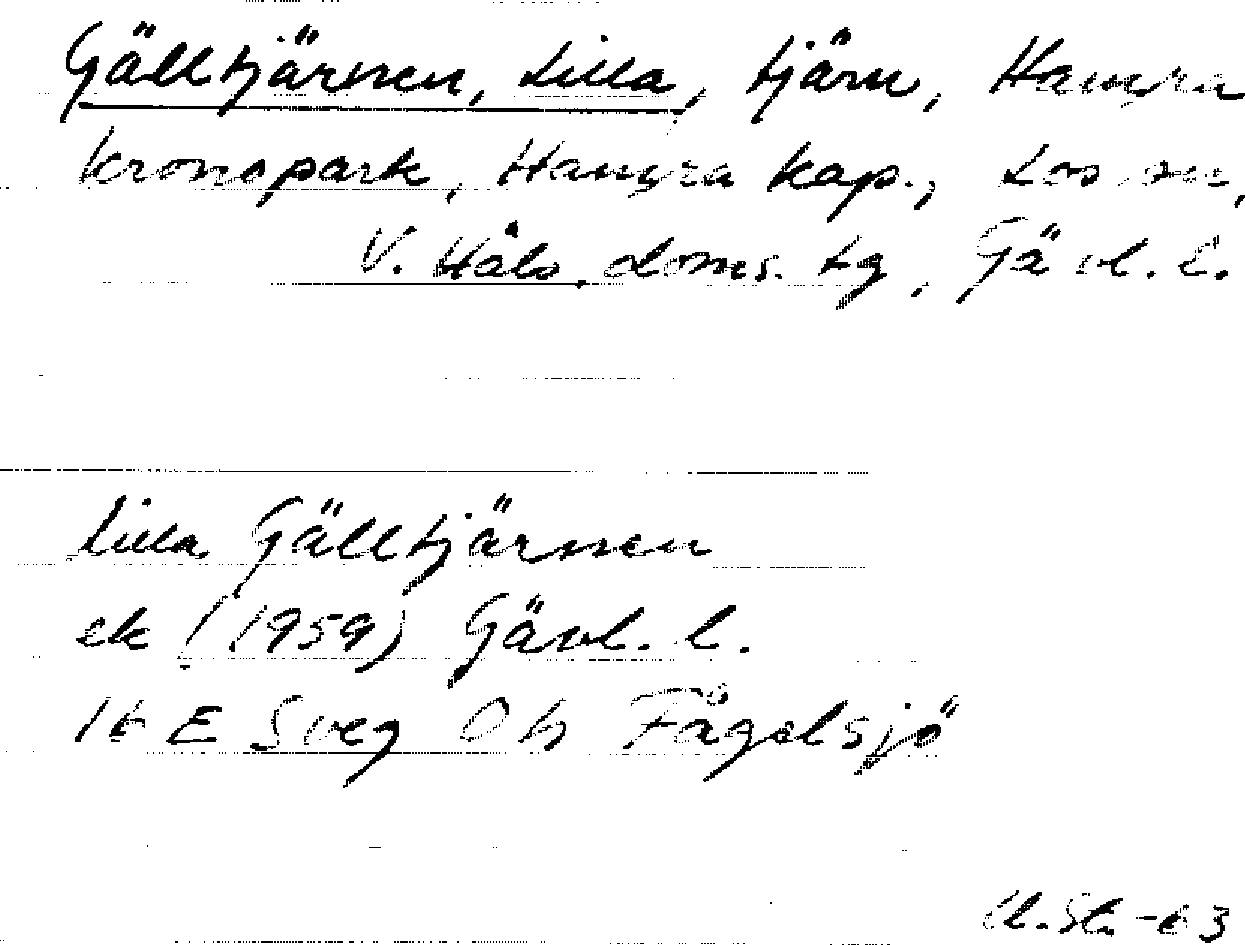 Gälltjärnen, Lilla, tjärn, Hamra
kronopark, Hamra kap., Los sn,
V. Häls. doms. tg, Gävl. l.
Lilla Gälltjärnen
ek (1959) Gävl. l.
16 E Sveg Oh Fågelsjö
-63